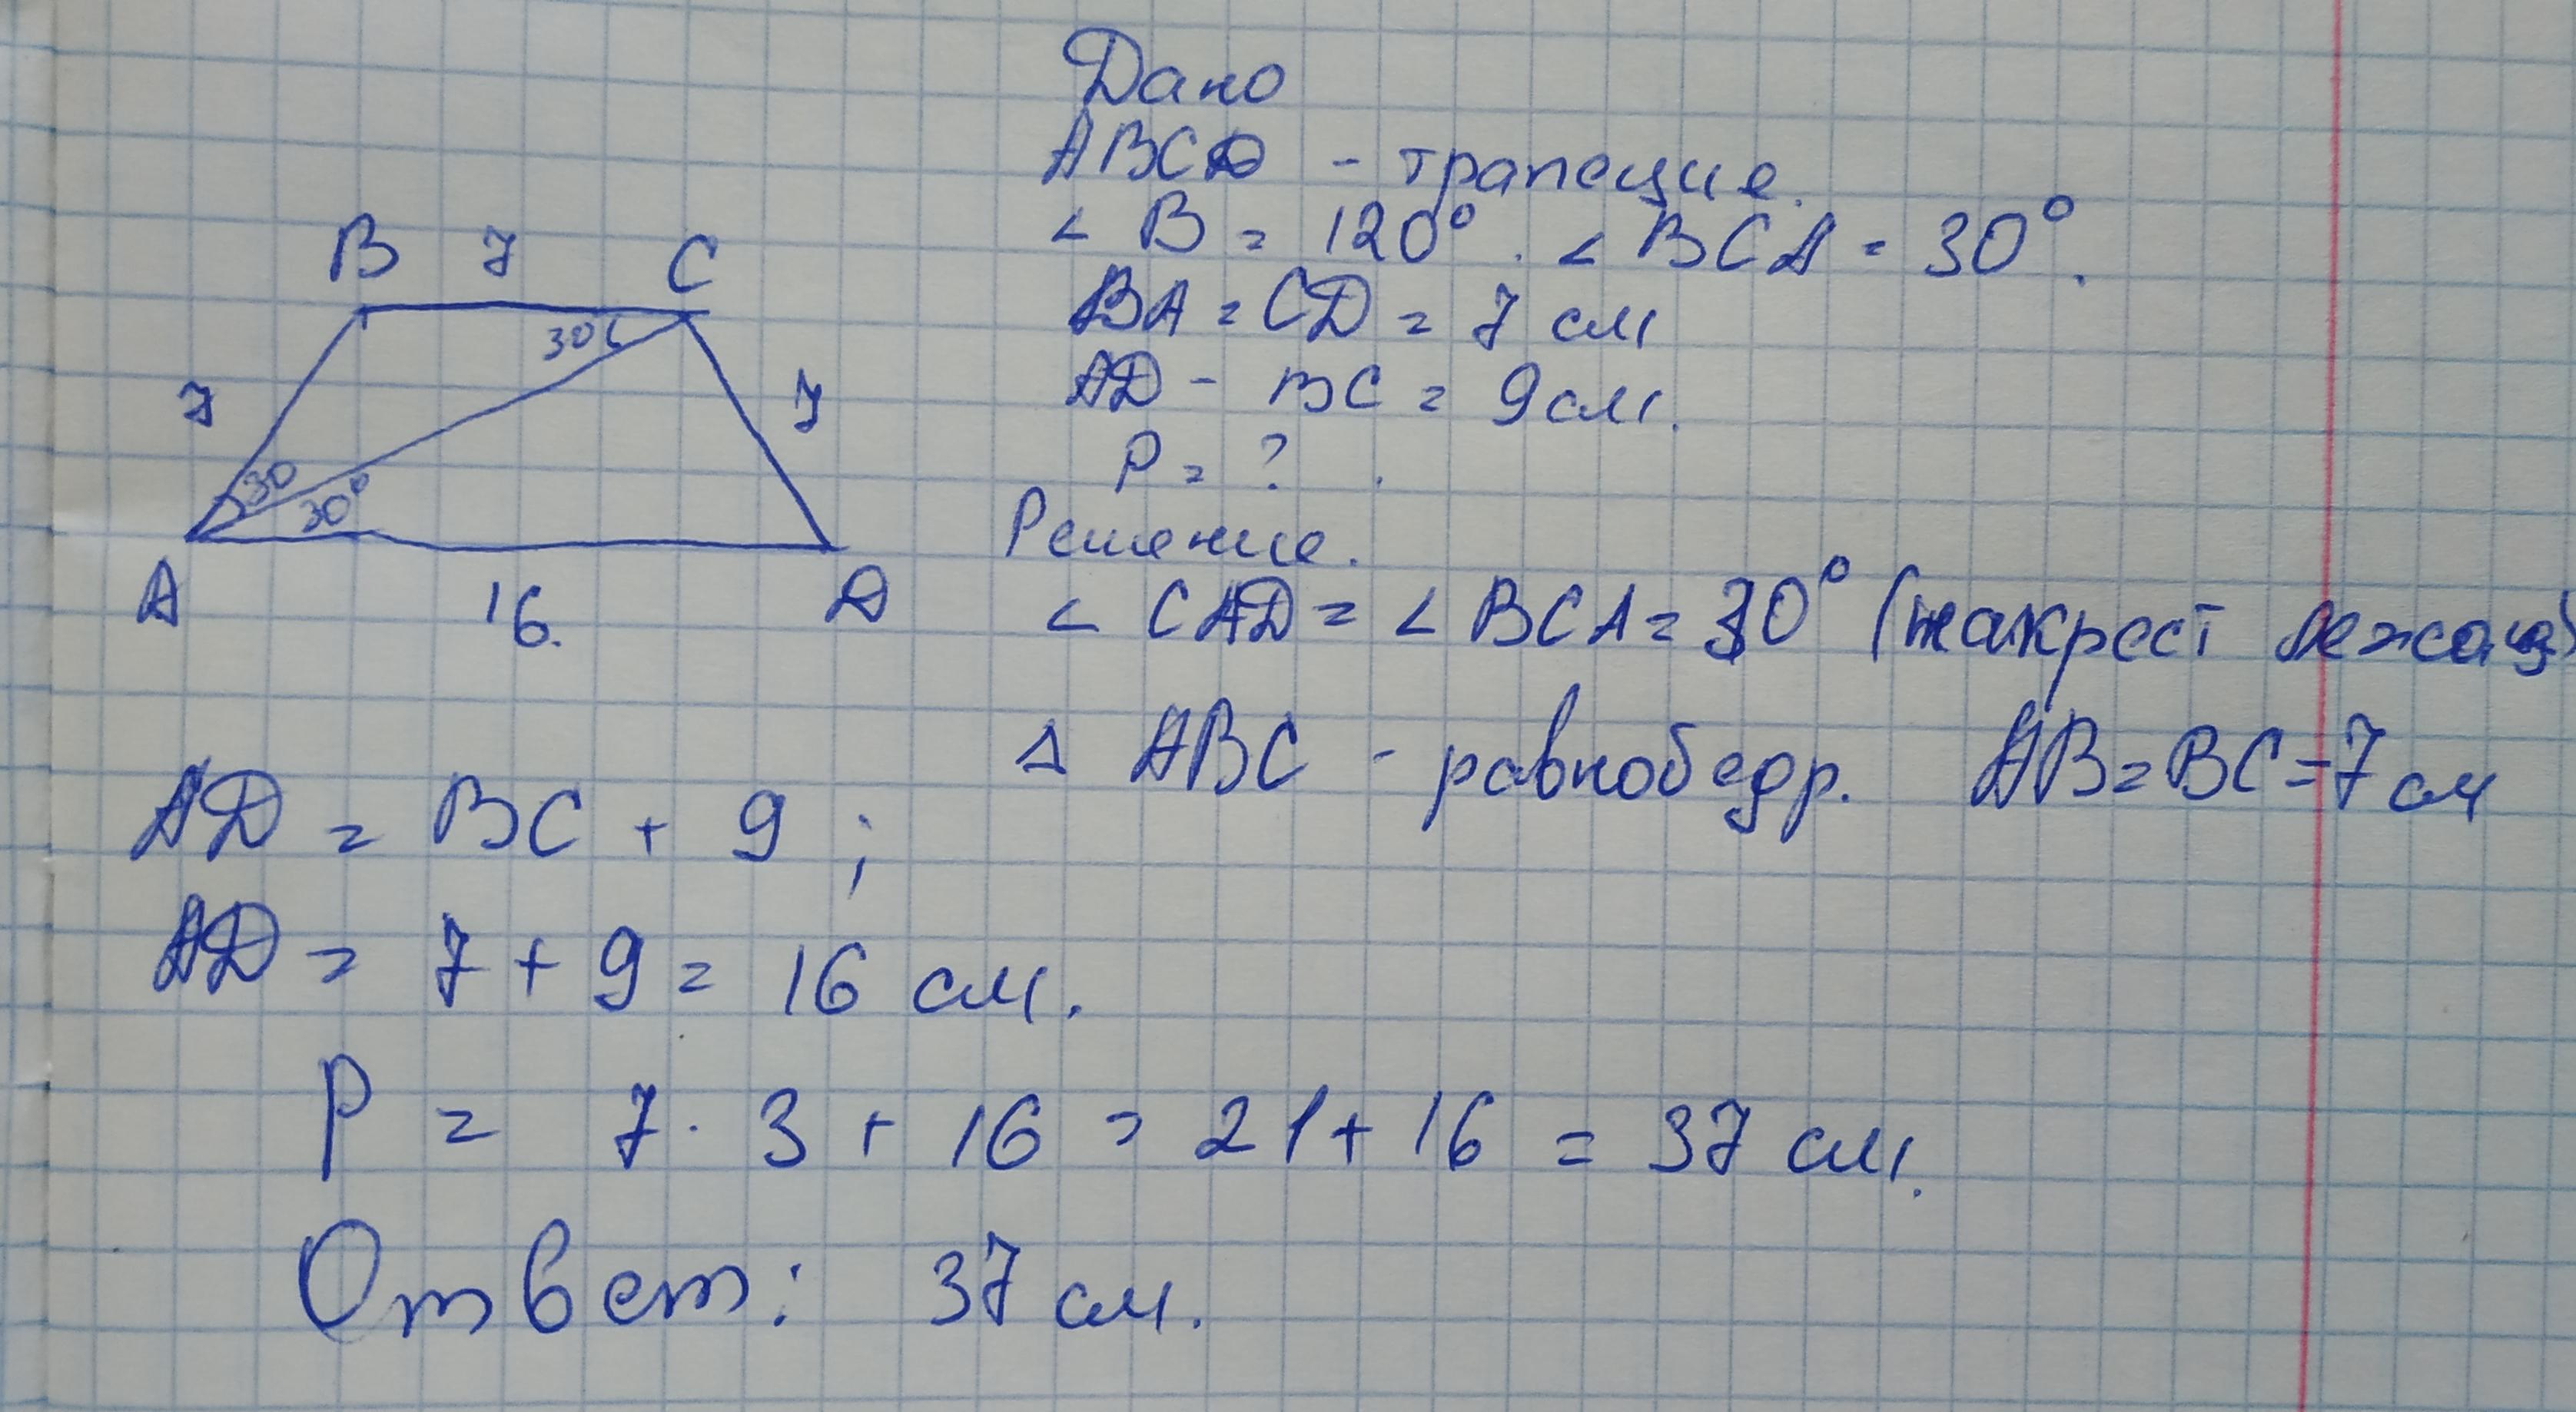 Дано
ABCD - трапеция.
∠ B = 120°. ∠ BCA = 30°.
BA = CD = 7 см
AD - BC = 9 см.
P = ?
Решение.
∠ CAD = ∠ BCA = 30° (накрест лежащ)
Δ ABC - равнобедр. AB = BC = 7 см
B 7 C
30
7 7
30 30°
A 16. D
AD = BC + 9;
AD = 7 + 9 = 16 см.
P = 7 · 3 + 16 = 21 + 16 = 37 см.
Ответ: 37 см.